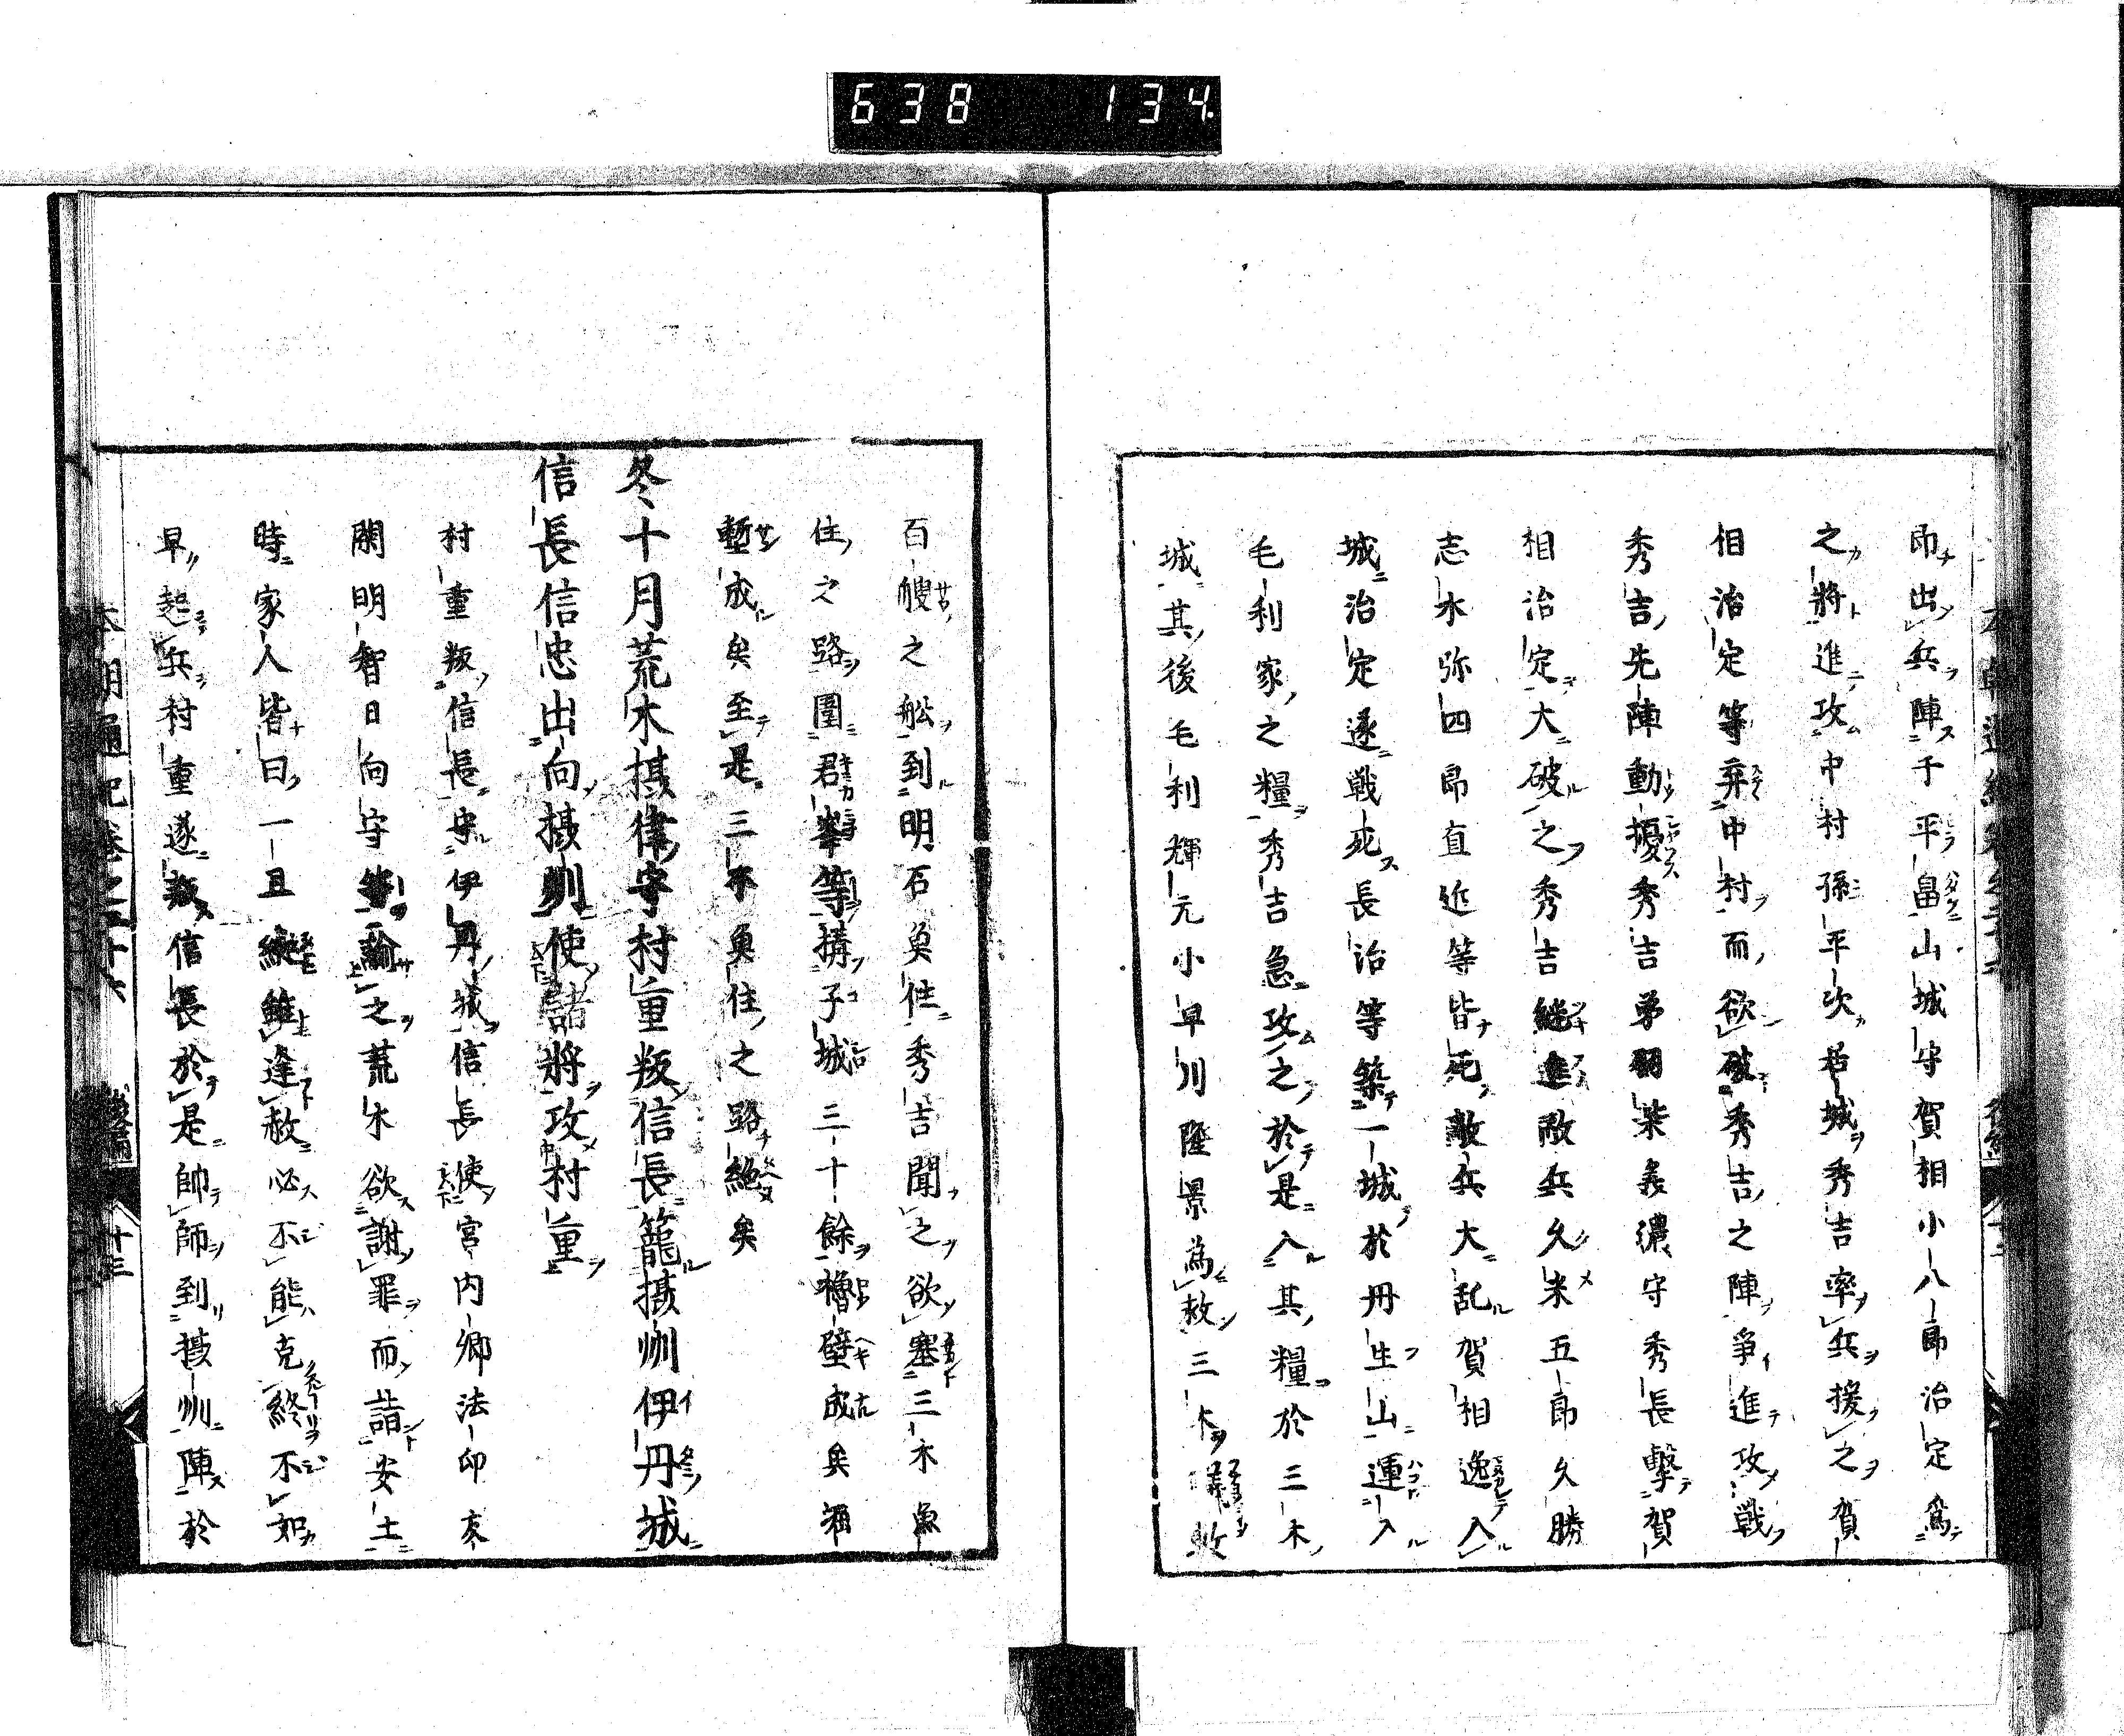 638 134
即出兵陣于平畠山城守賀相小八郎治定爲
之將進攻中村孫平次居城秀吉率兵援之賀
相治定等弃中村而欲破秀吉之陣爭進攻戰
秀吉先陣動擾秀吉弟羽柴美濃守秀長擊賀
相治定大破之秀吉継進敵兵久米五郎久勝
志水弥四郎直近等皆死敵兵大乱賀相逸入
城治定遂戦死長治等築一城於丹生山運入
毛利家之糧秀吉急攻之於是入其糧於三木
城其後毛利輝元小早川隆景為救三木
百艘之舩到明石奠住秀吉聞之欲塞三木奠
住之路圍君峯等搆子城三十餘櫓壁成矣
塹成矣至是三木奠住之路絶矣
冬十月荒木摂津守村重叛信長籠摂州伊丹城
信長信忠出向摂州使諸將攻村重
村重叛信長守伊丹城信長使宮内卿法印友
閑明智日向守等諭之荒木欲謝罪而詣安土
時家人皆曰一旦縱雖逢赦必不能克終不如
早起兵村重遂叛信長於是帥師到摂州陣於
本朝通紀卷之二十六 後編 十三